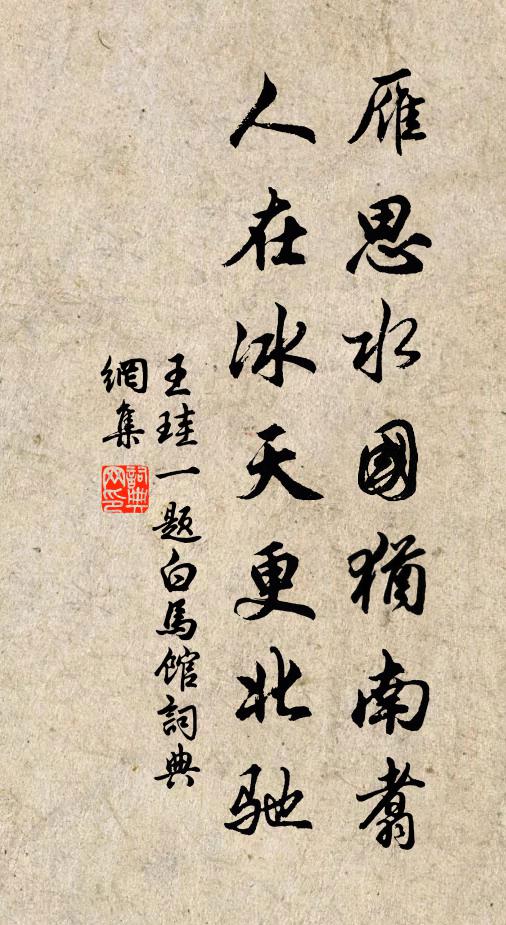 雁思水國猶南翥
人在冰天更北馳
王珪一题白馬馆詞典
網集
詞典網印